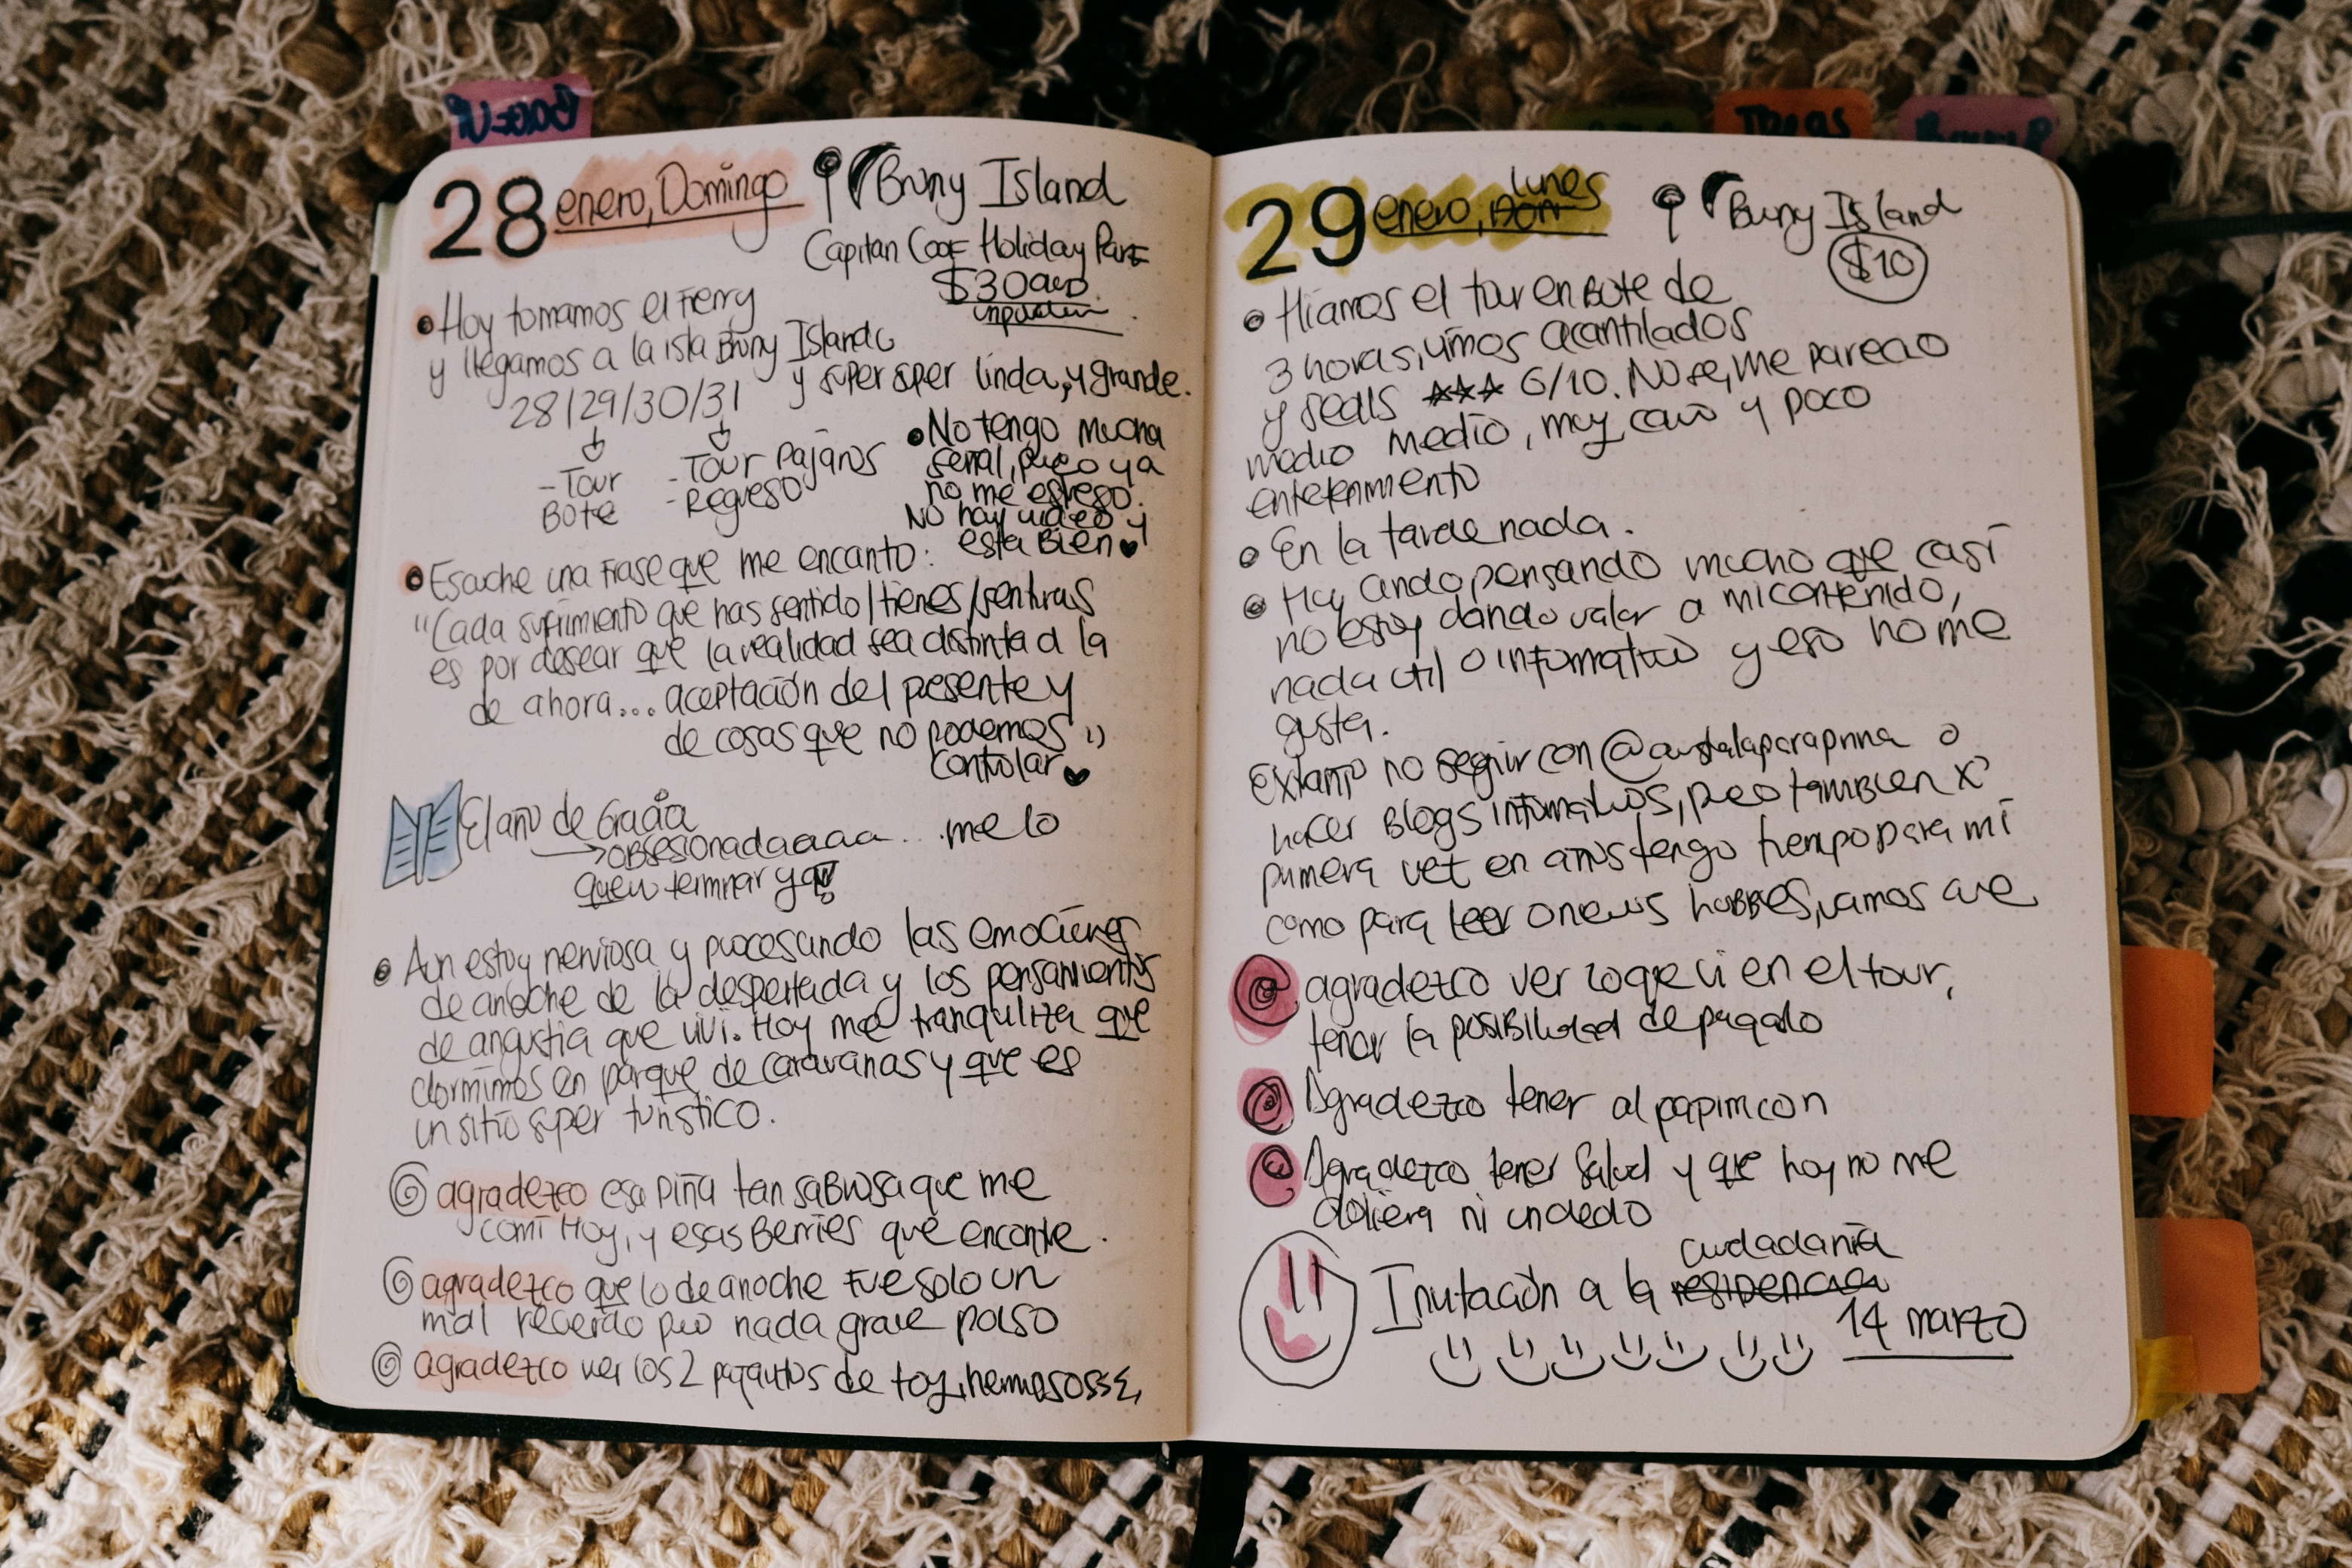 28 enero, Domingo
Bruny Island
Capitan Cook Holiday Park
$30 aud
• Hoy tomamos el Ferry
y llegamos a la isla Bruny Island
y super super linda, y grande.
28/29/30/31
- Tour
Bote
- Tour Pajaros
- Regreso
• No tengo mucha
señal, pero ya
no me estreso.
No hay video y
esta Bien
• Escuche una Frase que me encanto:
"Cada sufrimiento que has sentido/tienes/sentiras
es por desear que la realidad sea distinta a la
de ahora... aceptación del presente y
de cosas que no podemos
controlar"
El año de Gracia
obsesionadaaaaa... me lo
quiero terminar ya!
• Aun estoy nerviosa y procesando las emociones
de anoche de la despertada y los pensamientos
de angustia que viví. Hoy me tranquiliza que
dormimos en parque de caravanas y que es
un sitio super turistico.
agradezco esa Piña tan saBrosa que me
comí Hoy, y esas Berries que encontre.
agradezco que lo de anoche Fue solo un
mal recuerdo pero nada grave paso
agradezco ver los 2 pajaritos de hoy, hermososss,
29 enero, Dom lunes
Bruny Island
$10
• Hiamos el tour en Bote de
3 horas, vimos acantilados
y seals 6/10. No se, me parecio
medio medio, muy caro y poco
entetenimiento
• En la tarde nada.
• Hoy ando pensando mucho que casi
no estoy dando valor a mi contenido,
nada util o informativo y eso no me
gusta.
Extraño no seguir con @australiaparaprima o
hacer Blogs informativos, pero tambien x'
primera vez en años tengo tiempo para mí
como para leer o news hoBBies, vamos a ve
agradezco ver lo que vi en el tour,
tener la posiBilidad de pagalo
Agradezco tener al papimcon
Agradezco tener Salud y que hoy no me
doliera ni un dedo
ciudadania
Invitación a la residencia
14 marzo